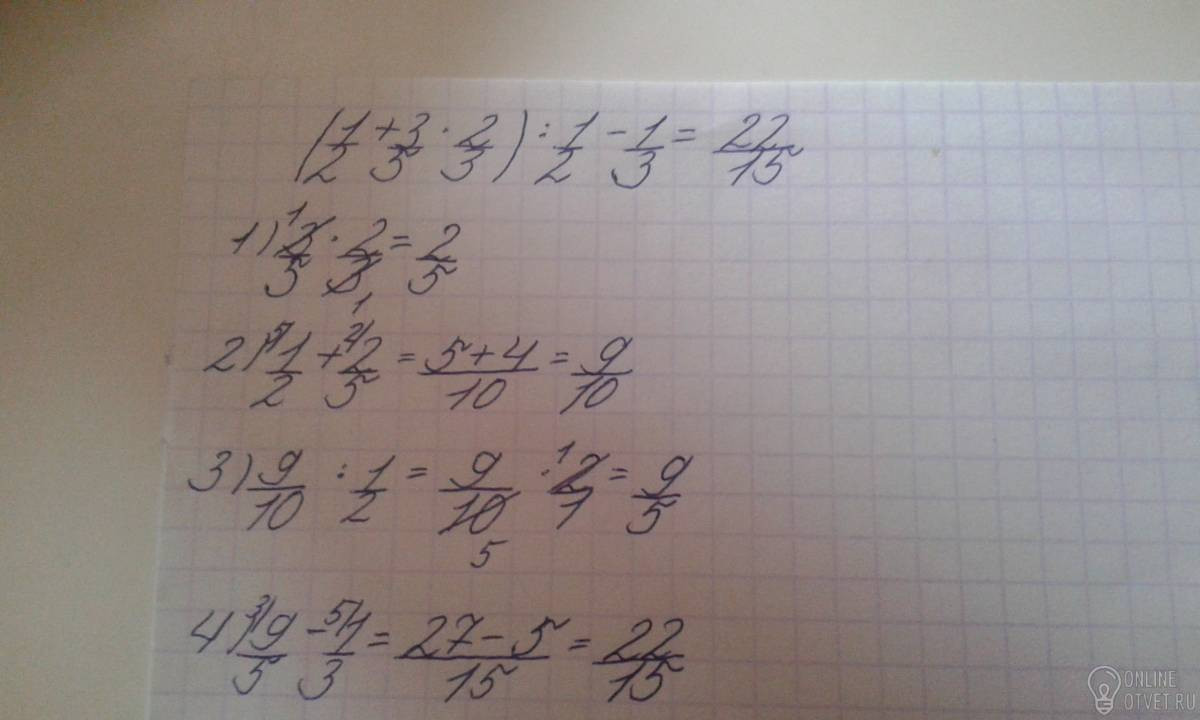 (1/2 + 3/5 · 2/3) : 1/2 - 1/3 = 22/15
1) 3/5 · 2/3 = 2/5 1 1
2) 5 1/2 + 2 2/5 = 5+4/10 = 9/10
3) 9/10 : 1/2 = 9/10 · 2/1 = 9/5 1 5
4) 3 9/5 - 5 1/3 = 27-5/15 = 22/15
ONLINE
OTVET.RU